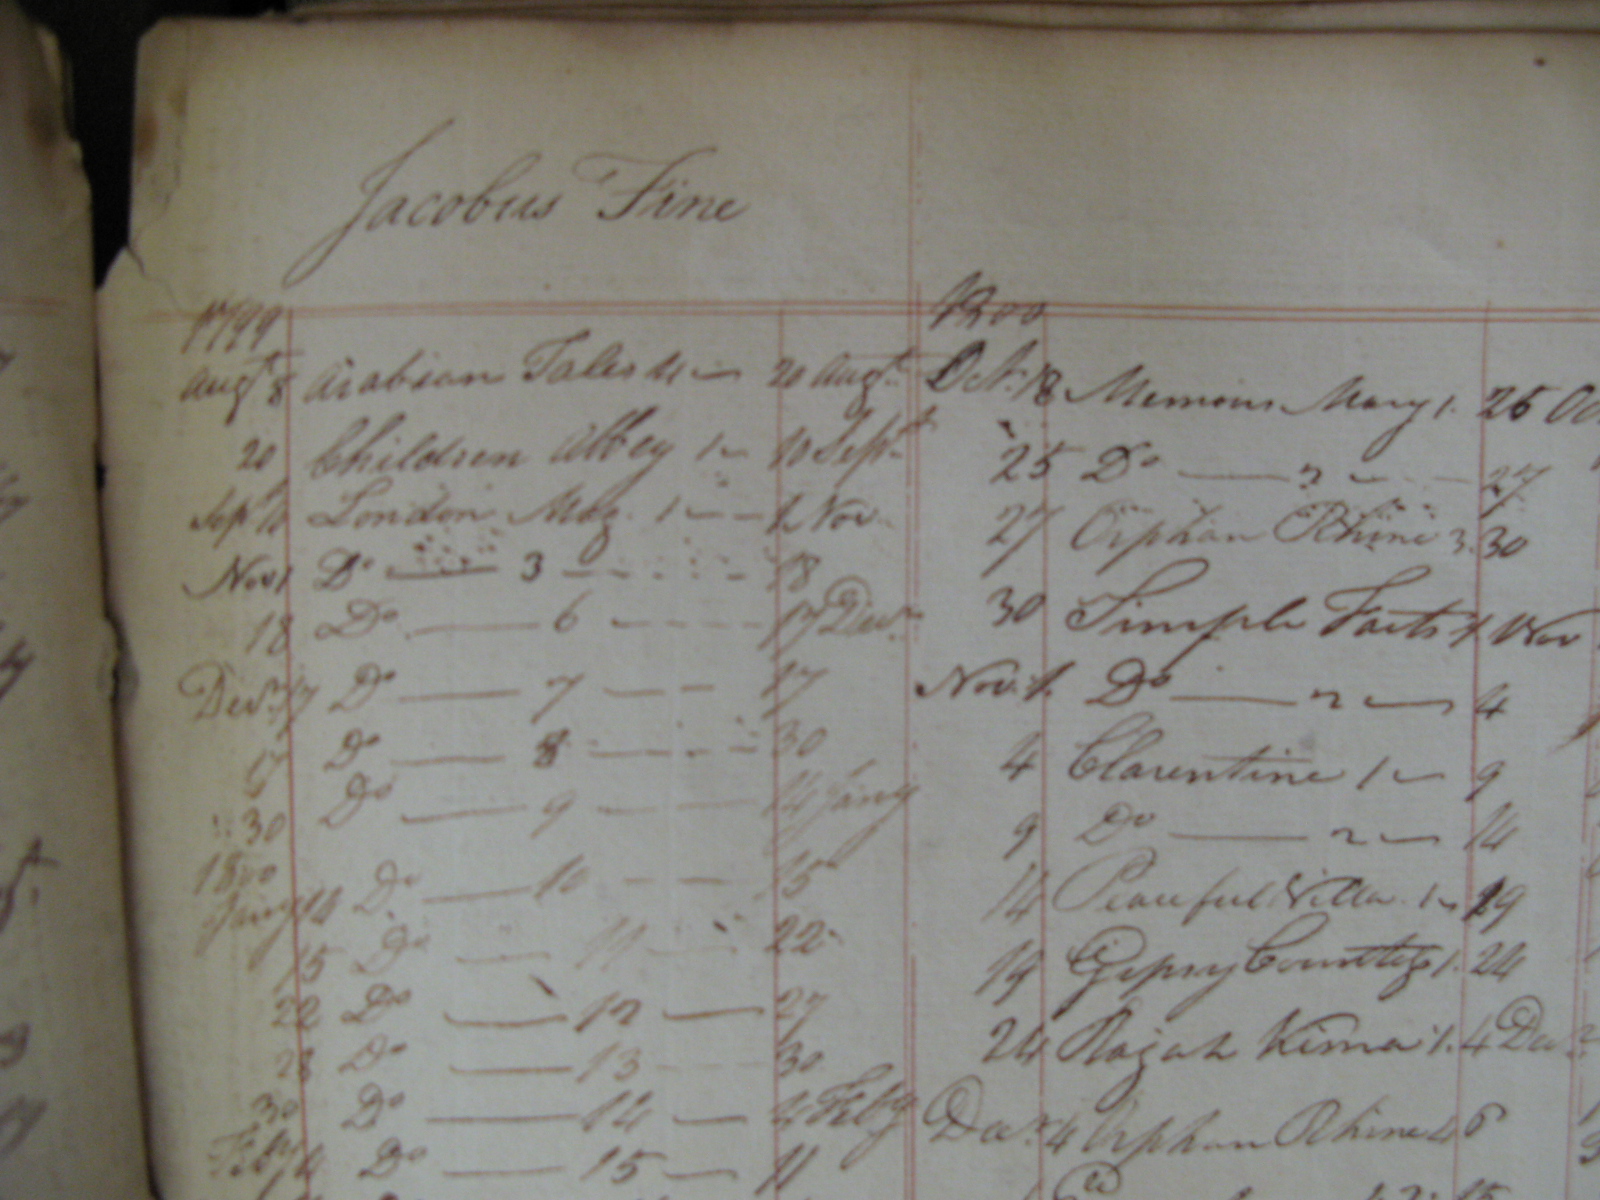 Jacobus Fine
1799
Augt 8 Arabian Tales 4 — 20 Augt
20 Children Abbey 1 — 10 Sept
Sept 10 London Mag. 1 — 1 Nov
Nov 1 Do — 3 — 18
18 Do — 6 — 17 Decr
Decr 17 Do — 7 — 17
17 Do — 8 — 30
30 Do — 9 — 14 Jany
1800
Jany 14 Do — 10 — 15
15 Do — 11 — 22
22 Do — 12 — 27
28 Do — 13 — 30
30 Do — 14 — 4 Feby
Feby 4 Do — 15 — 11
1800
Oct. 18 Memoirs Mary 1. 25 Oc
25 Do — 2 — 27
27 Orphan Rhine 3. 30
30 Simple Facts 1 1 Nov
Nov. 1. Do — 2 — 4
4 Clarentine 1 — 9
9 Do — 2 — 14
14 Peaceful Villa. 1 — 19
19 Gipsy Countess 1. 24
24 Rajah Kisna 1. 4 Dec
Dec. 4 Orphan Rhine 4 6